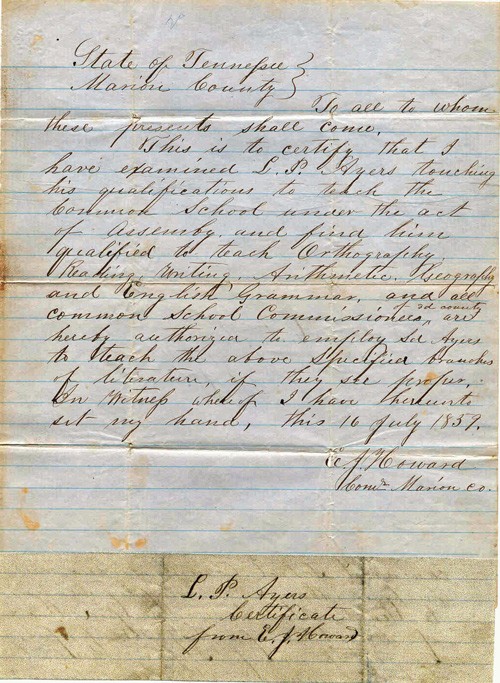 State of Tennessee }
Marion County }
To all to whom
these presents shall come,
This is to certify that I
have examined L. P. Ayers touching
his qualifications to teach the
Common School under the act
of Assemby and find him
qualified to teach Orthography
Reading, Writing, Arithmetic, Geography
and English Grammar, and all
common School Commissioners, sd county are
hereby authorized to employ sd Ayers
to teach the above Specified branches
of literature, if they see proper.
In Witness whereof I have hereunto
set my hand, this 16 July 1859.
E. J. Howard
Comr Marion co.
L. P. Ayers
Certificate
from E. J. Howard